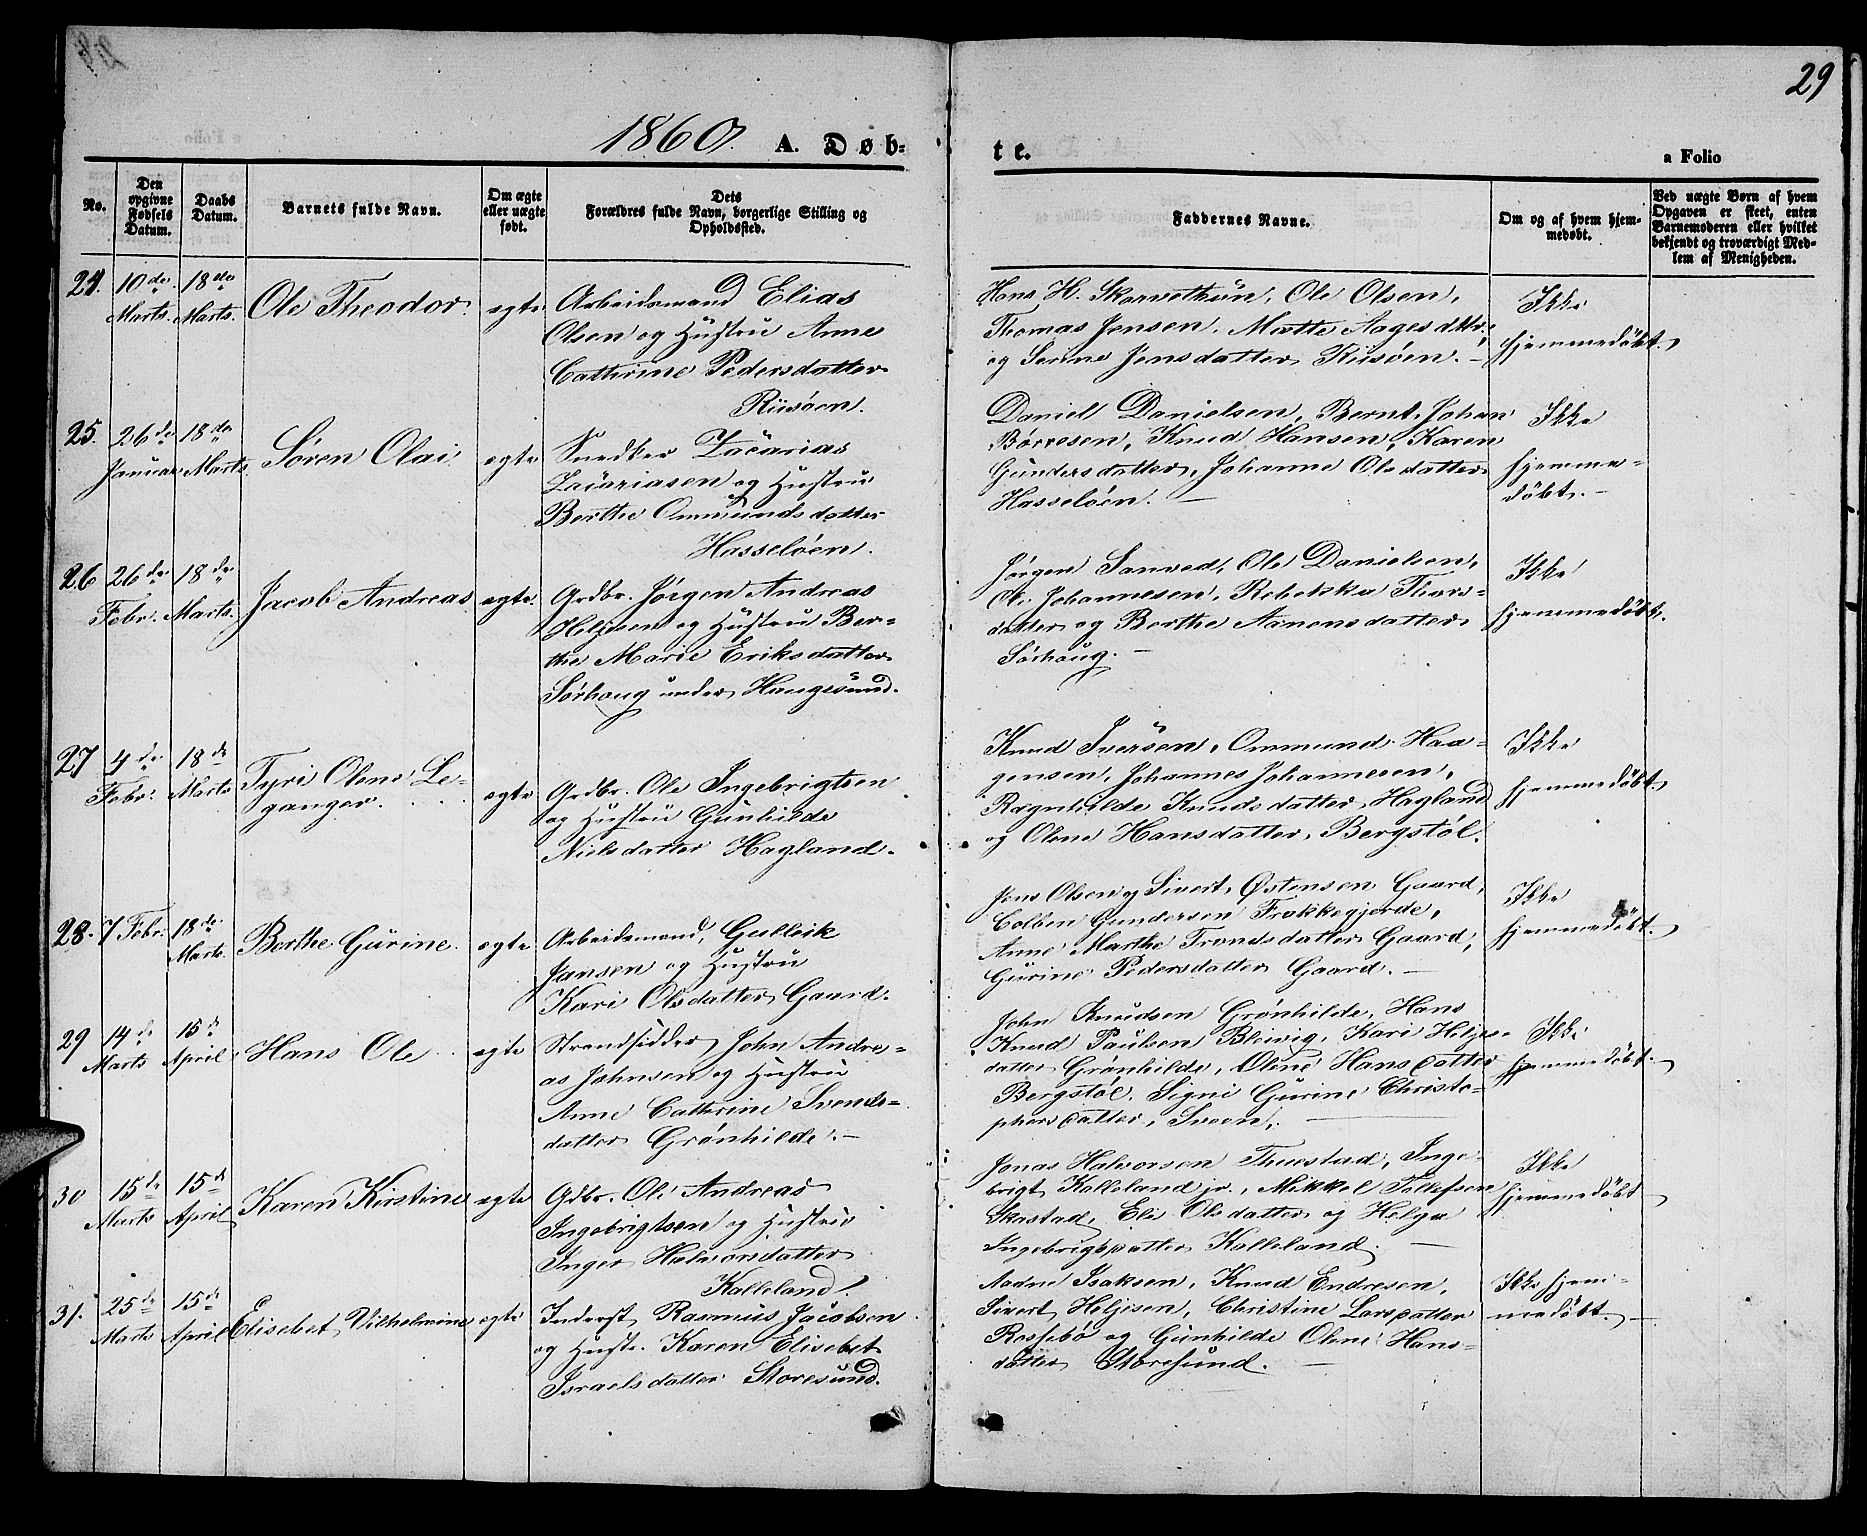 29
1860. A. Døb-
te.
a Folio
No.
Den opgivne Fødsels Datum.
Daabs Datum.
Barnets fulde Navn.
Om ægte eller uægte født.
Dets Forældres fulde Navn, borgerlige Stilling og Opholdssted.
Faddernes Navne.
Om og af hvem hjemmedøbt.
Ved uægte Børn af hvem Opgaven er skeet, enten Barnemoderen eller hvilket bekjendt og troværdigt Medlem af Menigheden.
24. 10de Marts. 18de Marts. Ole Theodor. egte
Arbeidsmand Elias
Olsen og Hustru Anne
Cathrine Pedersdatter
Riisøen.
Hans H. Skarvethün, Ole Olsen,
Thomas Jensen, Mætte Aagesdttr.
og Serine Jensdatter Riisøen. —
Ikke
hjemmedöbt.
25. 26de Januar 18de Marts. Søren Olai. egte
Snedker Zacarias
Zacariasen og Hustru
Berthe Ommundsdatter
Hasseløen.
Daniel Danielsen, Bernt Johan
Børresen, Knud Hansen, Karen
Gundersdatter, Johanne Olsdatter
Hasseløen. —
Ikke
hjemme=
döbt. —
26 26de Febr. 18de Marts. Jacob Andreas egte
Grdbr. Jørgen Andreas
Helgesen og Hustru Ber=
the Marie Eriksdatter
Sørhaug under Haugesund.
Jørgen Sanved, Ole Danielsen,
Ole Johannesen, Rebekka Thors=
datter og Berthe Aanensdatter
Sørhaug. —
Ikke
hjemmedöbt.
27 4de Febr. 18de Marts Tyri Olene Le=
ganger. egte
Grdbr. Ole Ingebrigtsen
og Hustru Gunhilde
Nielsdatter Hagland.
Knud Iversen, Ommund Haa=
gensen, Johannes Johannesen,
Ragnhilde Knudsdatter Hagland
og Olene Hansdatter, Bergstøl.
Ikke
hjemmedöbt.
28. 7 Febr. 18de Marts. Berthe Gürine. egte
Arbeidsmand, Gulleik
Jansen og Hustru
Kari Olsdatter Gaard.
Jens Olsen og Sivert Østensen Gaard,
Colben Gundersen Frakkegjerde,
Anne Marthe Trondsdatter Gaard,
Gürine Pedersdatter Gaard. —
Ikke
hjemmedöbt.
29 14de Marts 15de April Hans Ole egte
Strandsidder John Andre=
as Johnsen og Hustru
Anne Cathrine Svends=
datter Grønhilde. —
John Knudsen Grønhilde, Hans
Knud Paulsen Bleivig, Kari Helges=
datter Grønhilde, Olene Hansdatter
Bergstøl, Signi Gürine Christo=
phersdatter, Sveen. —
Ikke
hjemmedöbt.
30 15de Marts 15de April Karen Kirstine egte
Gdbr. Ole Andreas
Ingebrigtsen og Hustru
Inger Halvorsdatter
Kalleland.
Jonas Halvorsen Thuestad, Inge=
brigt Kalleland jr., Mikkel Tollefsen
Skastad, Eli Olsdatter og Helga
Ingebrigtsdatter Kalleland. —
Ikke
hjemmedöbt
31. 25de Marts 15de April Elisebet Vilhelmine egte
Inderst Rasmus Jacobsen
og Hustr. Karen Elisebet
Israelsdatter Storesund.
Aadne Isaksen, Knud Endresen,
Sivert Helgesen, Christine Larsdatter
Rossebø og Gunhilde Olene Hans=
datter Storesund. —
Ikke hjem=
medöbt. —